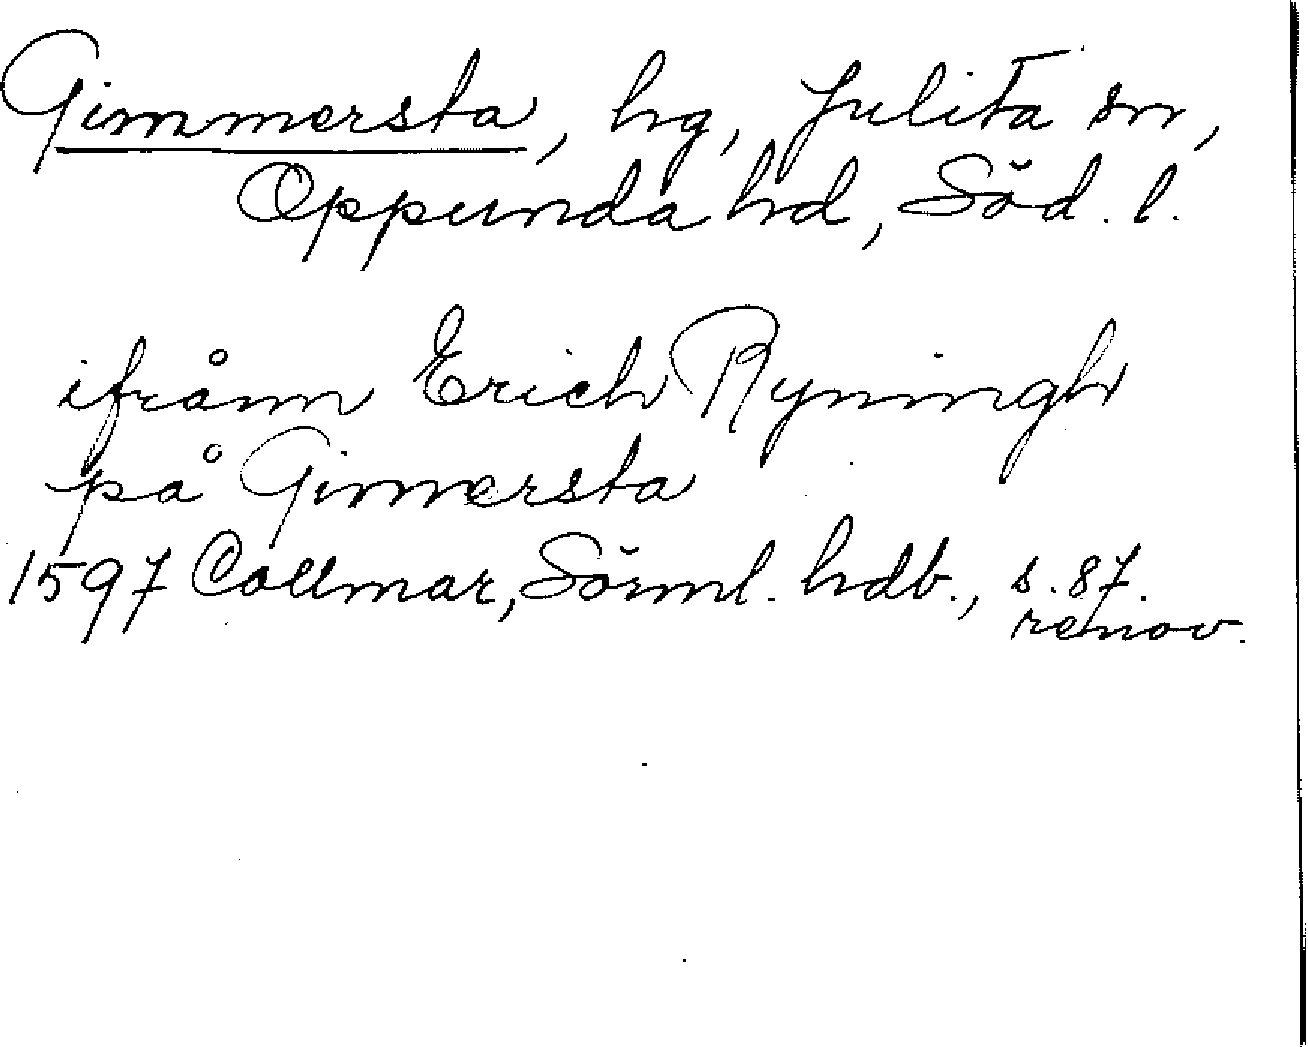 Gimmersta, hg, Julita sn,
Oppunda hd, Söd. l.
ifrånn Erich Ryningh
på Gimersta
1597 Collmar, Sörml. hdb., s. 87.
renov.